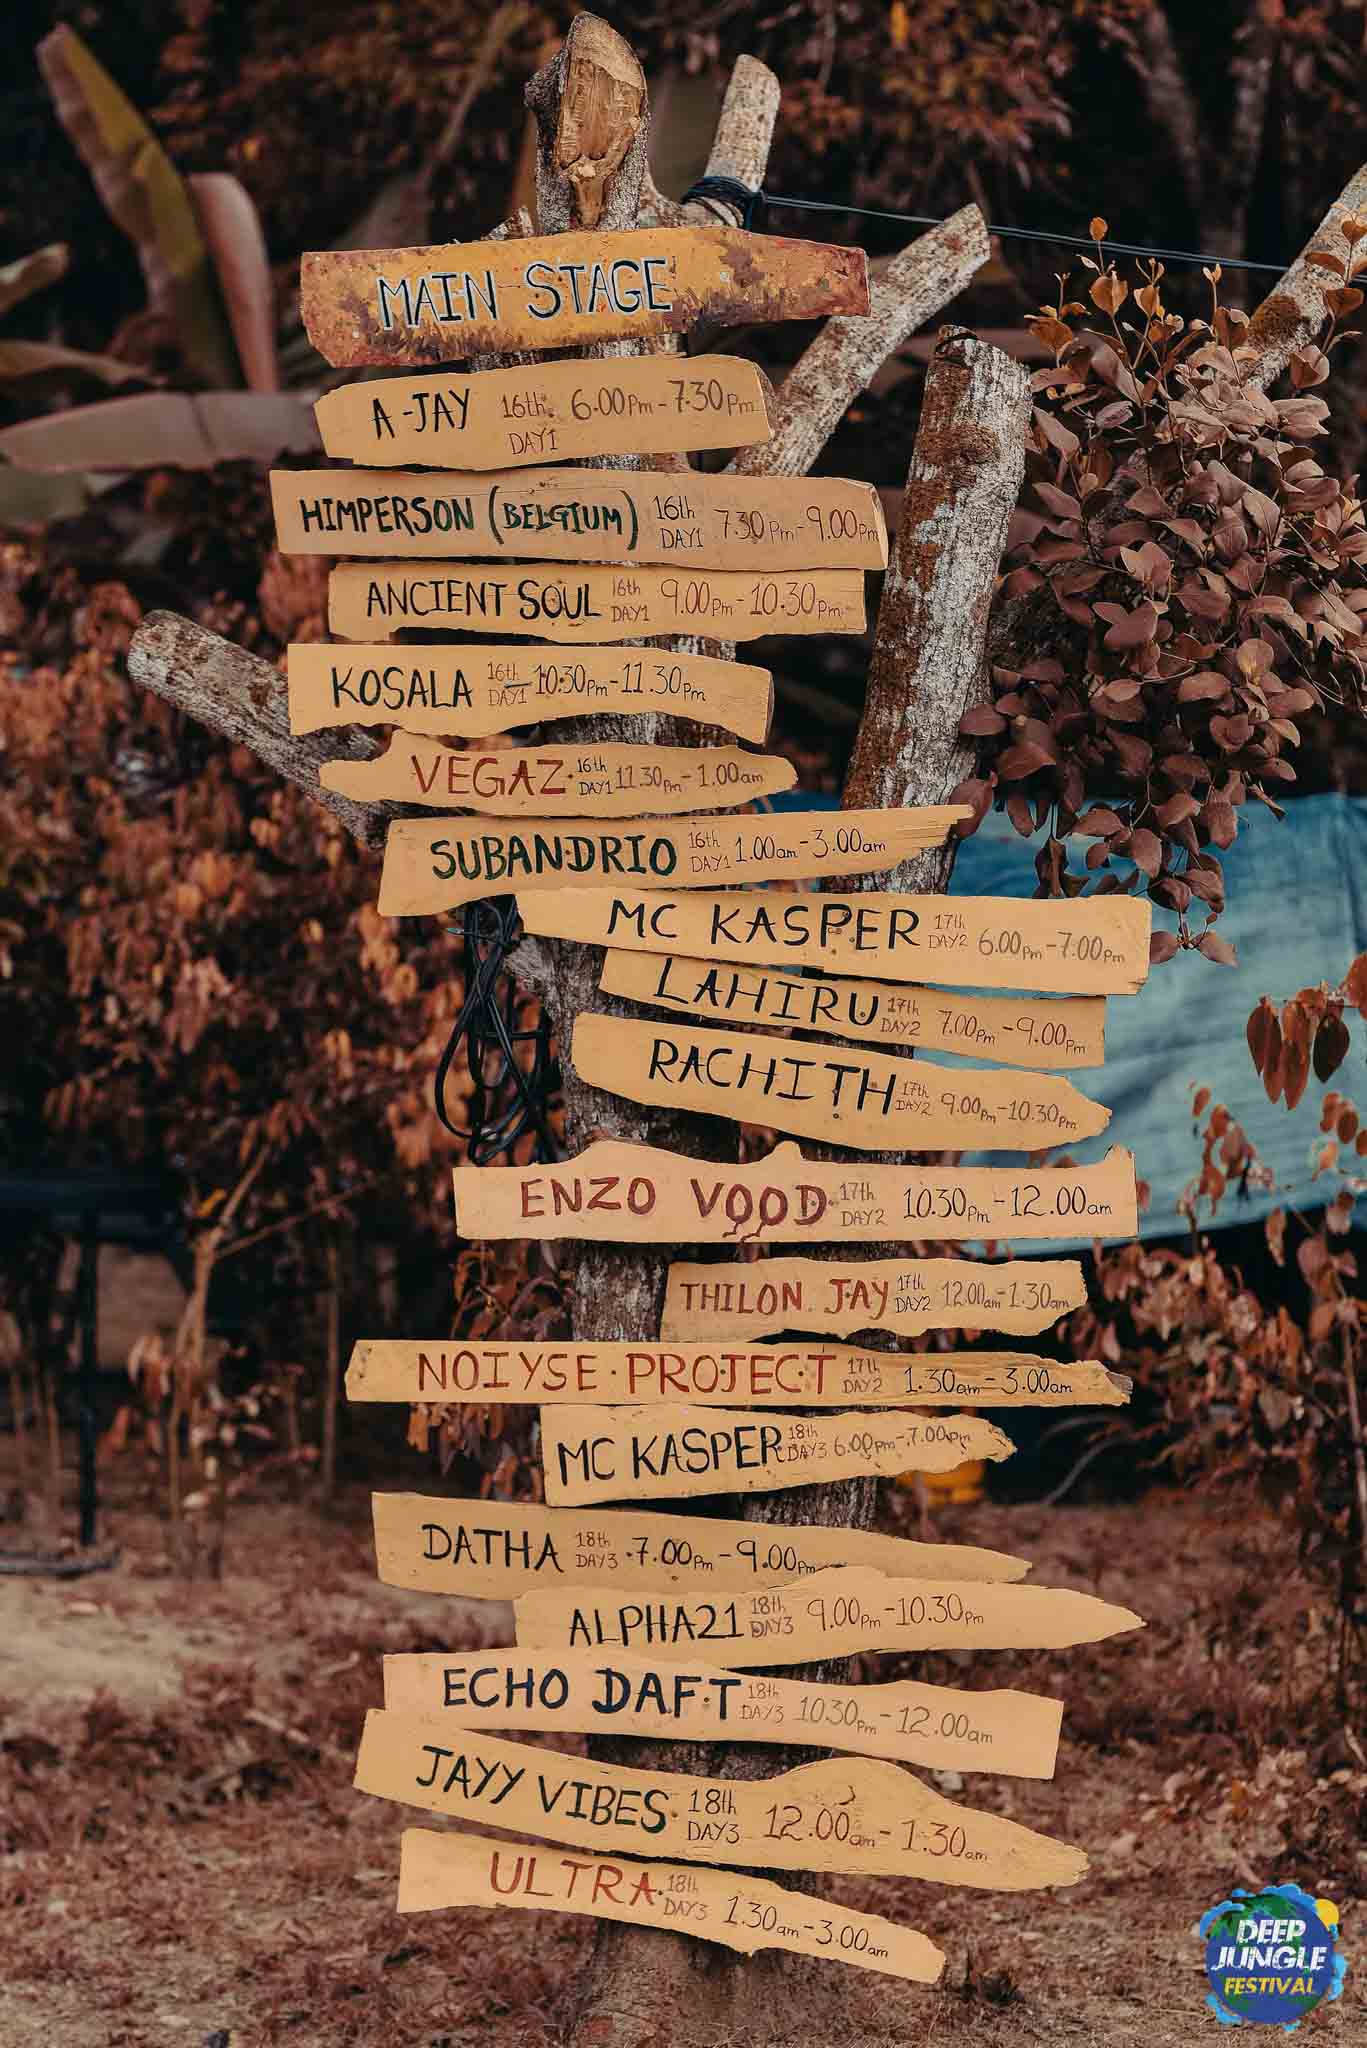 MAIN STAGE
A-JAY 16th DAY1 6.00Pm - 7.30Pm
HIMPERSON (BELGIUM) 16th DAY1 7.30Pm - 9.00Pm
ANCIENT SOUL 16th DAY1 9.00Pm - 10.30Pm
KOSALA 16th DAY1 10.30Pm - 11.30Pm
VEGAZ 16th DAY1 11.30Pm - 1.00am
SUBANDRIO 16th DAY1 1.00am - 3.00am
MC KASPER 17th DAY2 6.00Pm - 7.00Pm
LAHIRU 17th DAY2 7.00Pm - 9.00Pm
RACHITH 17th DAY2 9.00Pm - 10.30Pm
ENZO VOOD 17th DAY2 10.30Pm - 12.00am
THILON JAY 17th DAY2 12.00am - 1.30am
NOIYSE PROJECT 17th DAY2 1.30am - 3.00am
MC KASPER 18th DAY3 6.00Pm - 7.00Pm
DATHA 18th DAY3 7.00Pm - 9.00Pm
ALPHA21 18th DAY3 9.00Pm - 10.30Pm
ECHO DAFT 18th DAY3 10.30Pm - 12.00am
JAYY VIBES 18th DAY3 12.00am - 1.30am
ULTRA 18th DAY3 1.30am - 3.00am
DEEP
JUNGLE
FESTIVAL